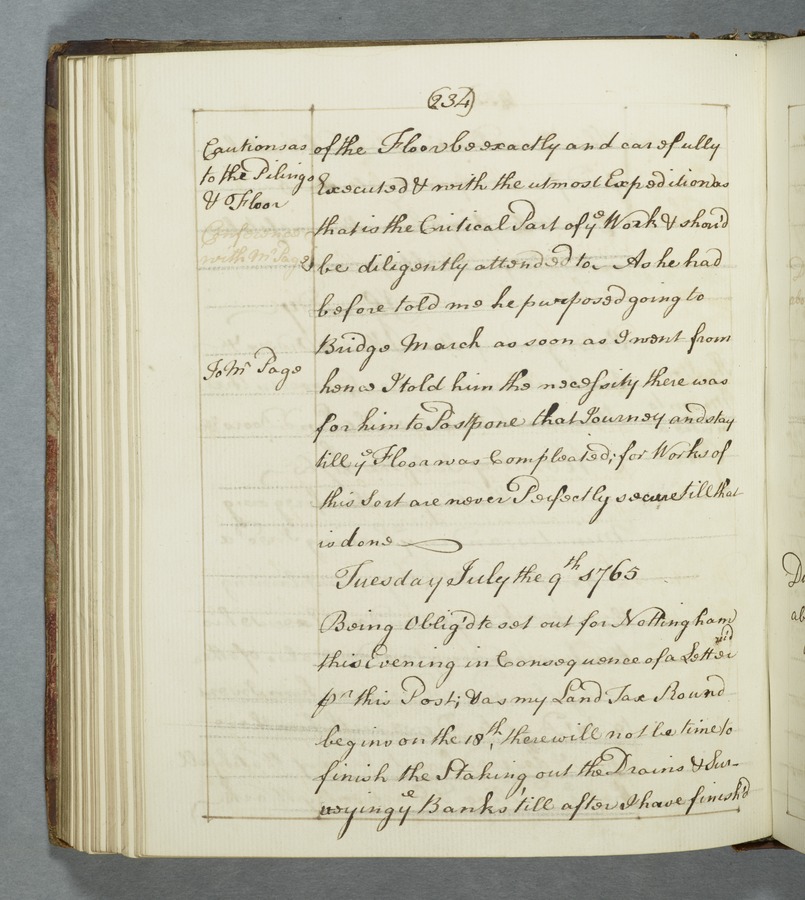 (234)
Cautions as
to the Piling
& Floor
Conference
with Mr Page
To Mr Page
of the Floor be exactly and carefully
Executed & with the utmost Expedition as
that is the Critical Part of ye Work & shou'd
be diligently attended to. As he had
before told me he purposed going to
Bridge March as soon as I went from
hence I told him the necessity there was
for him to Postpone that Journey and stay
till ye Floor was Compleated; for Works of
this Sort are never Perfectly secure till that
is done
Tuesday July the 9th 1765
Being Oblig'd to set out for Nottingham
this Evening in Consequence of a Letter
rec'd
this Post; & as my Land Tax Round
begins on the 18th, there will not be time to
finish the Staking out the Drains & Sur-
veying ye Banks 'till after I have finish'd